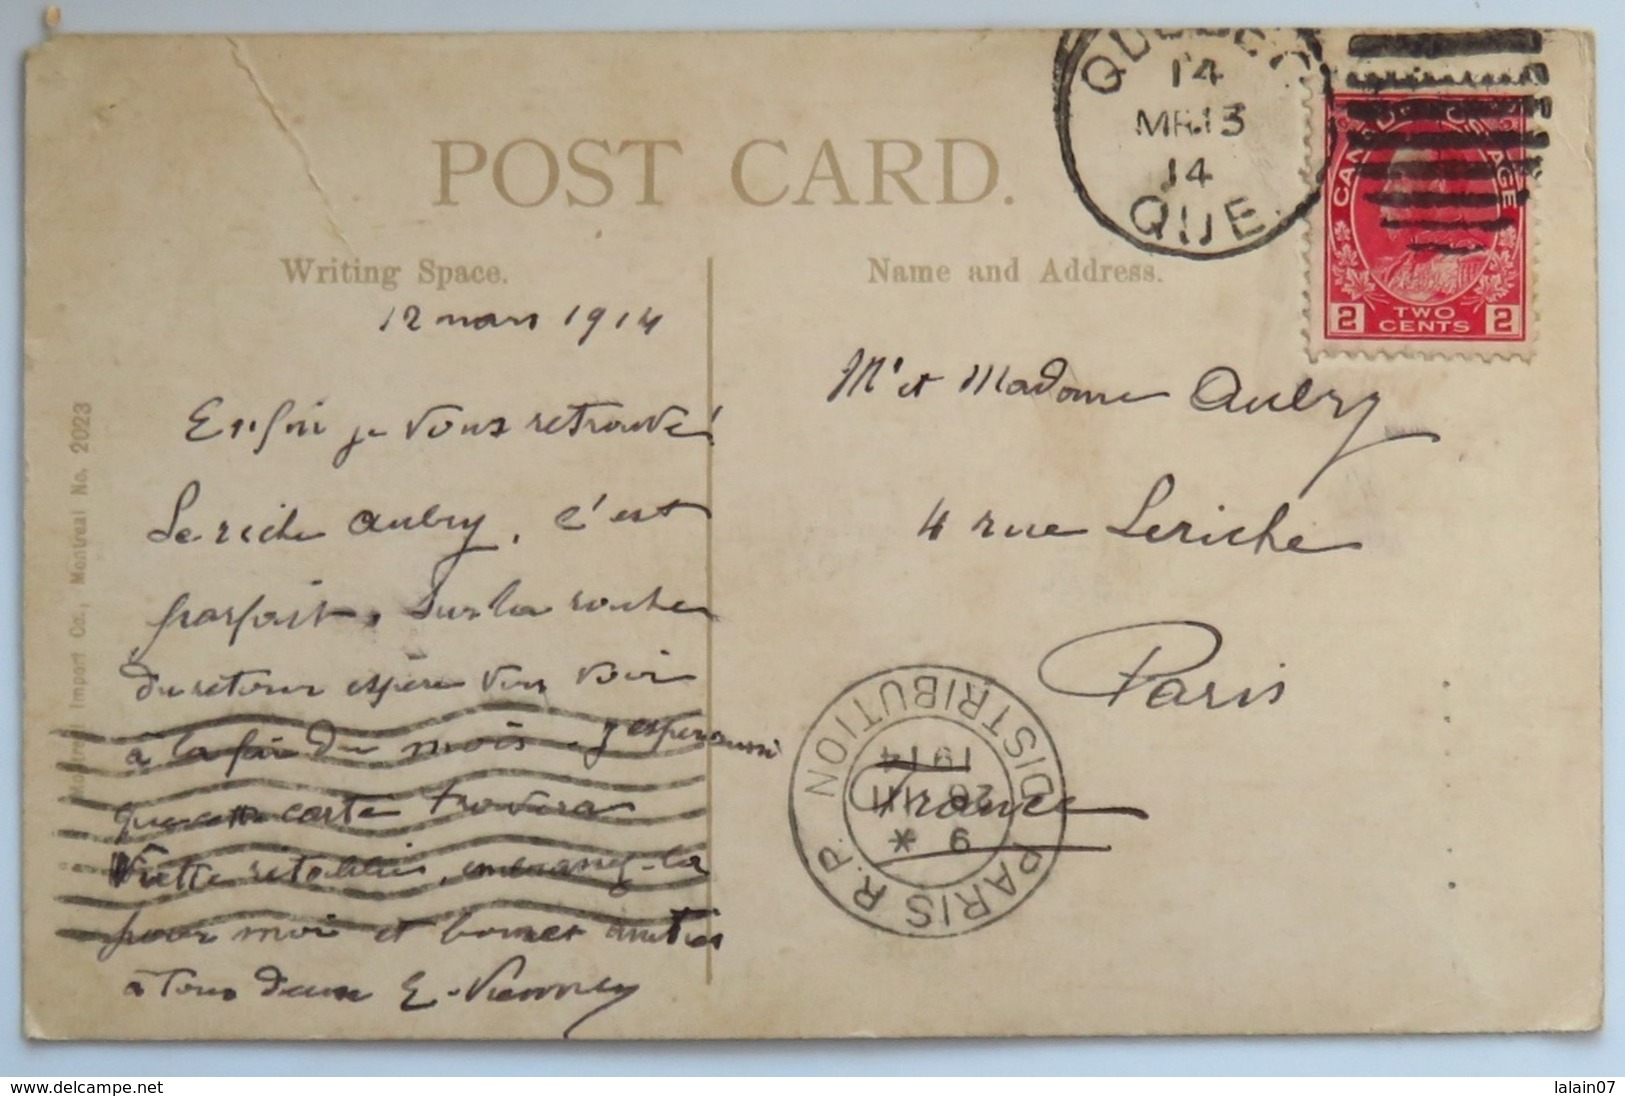 POST CARD.
Writing Space.
12 mars 1914
Enfin je vous retrouve!
Leriche Aubry, c'est
parfait. Sur la route
du retour espère vous voir
à la fin du mois. J'espère aussi
que cette carte trouvera
rétablie, embrassez-la
pour moi et bonnes amitiés
à tous deux E.
Name and Address.
Mr et Madame Aubry
4 rue Leriche
Paris
France
QUEBEC
14
MR 13
14
QUE.
CANADA POSTAGE
2 TWO CENTS 2
PARIS R.P. DISTRIBUTION
9 *
26 III
1914
Montreal Import Co., Montreal No. 2023
www.delcampe.net
lalain07